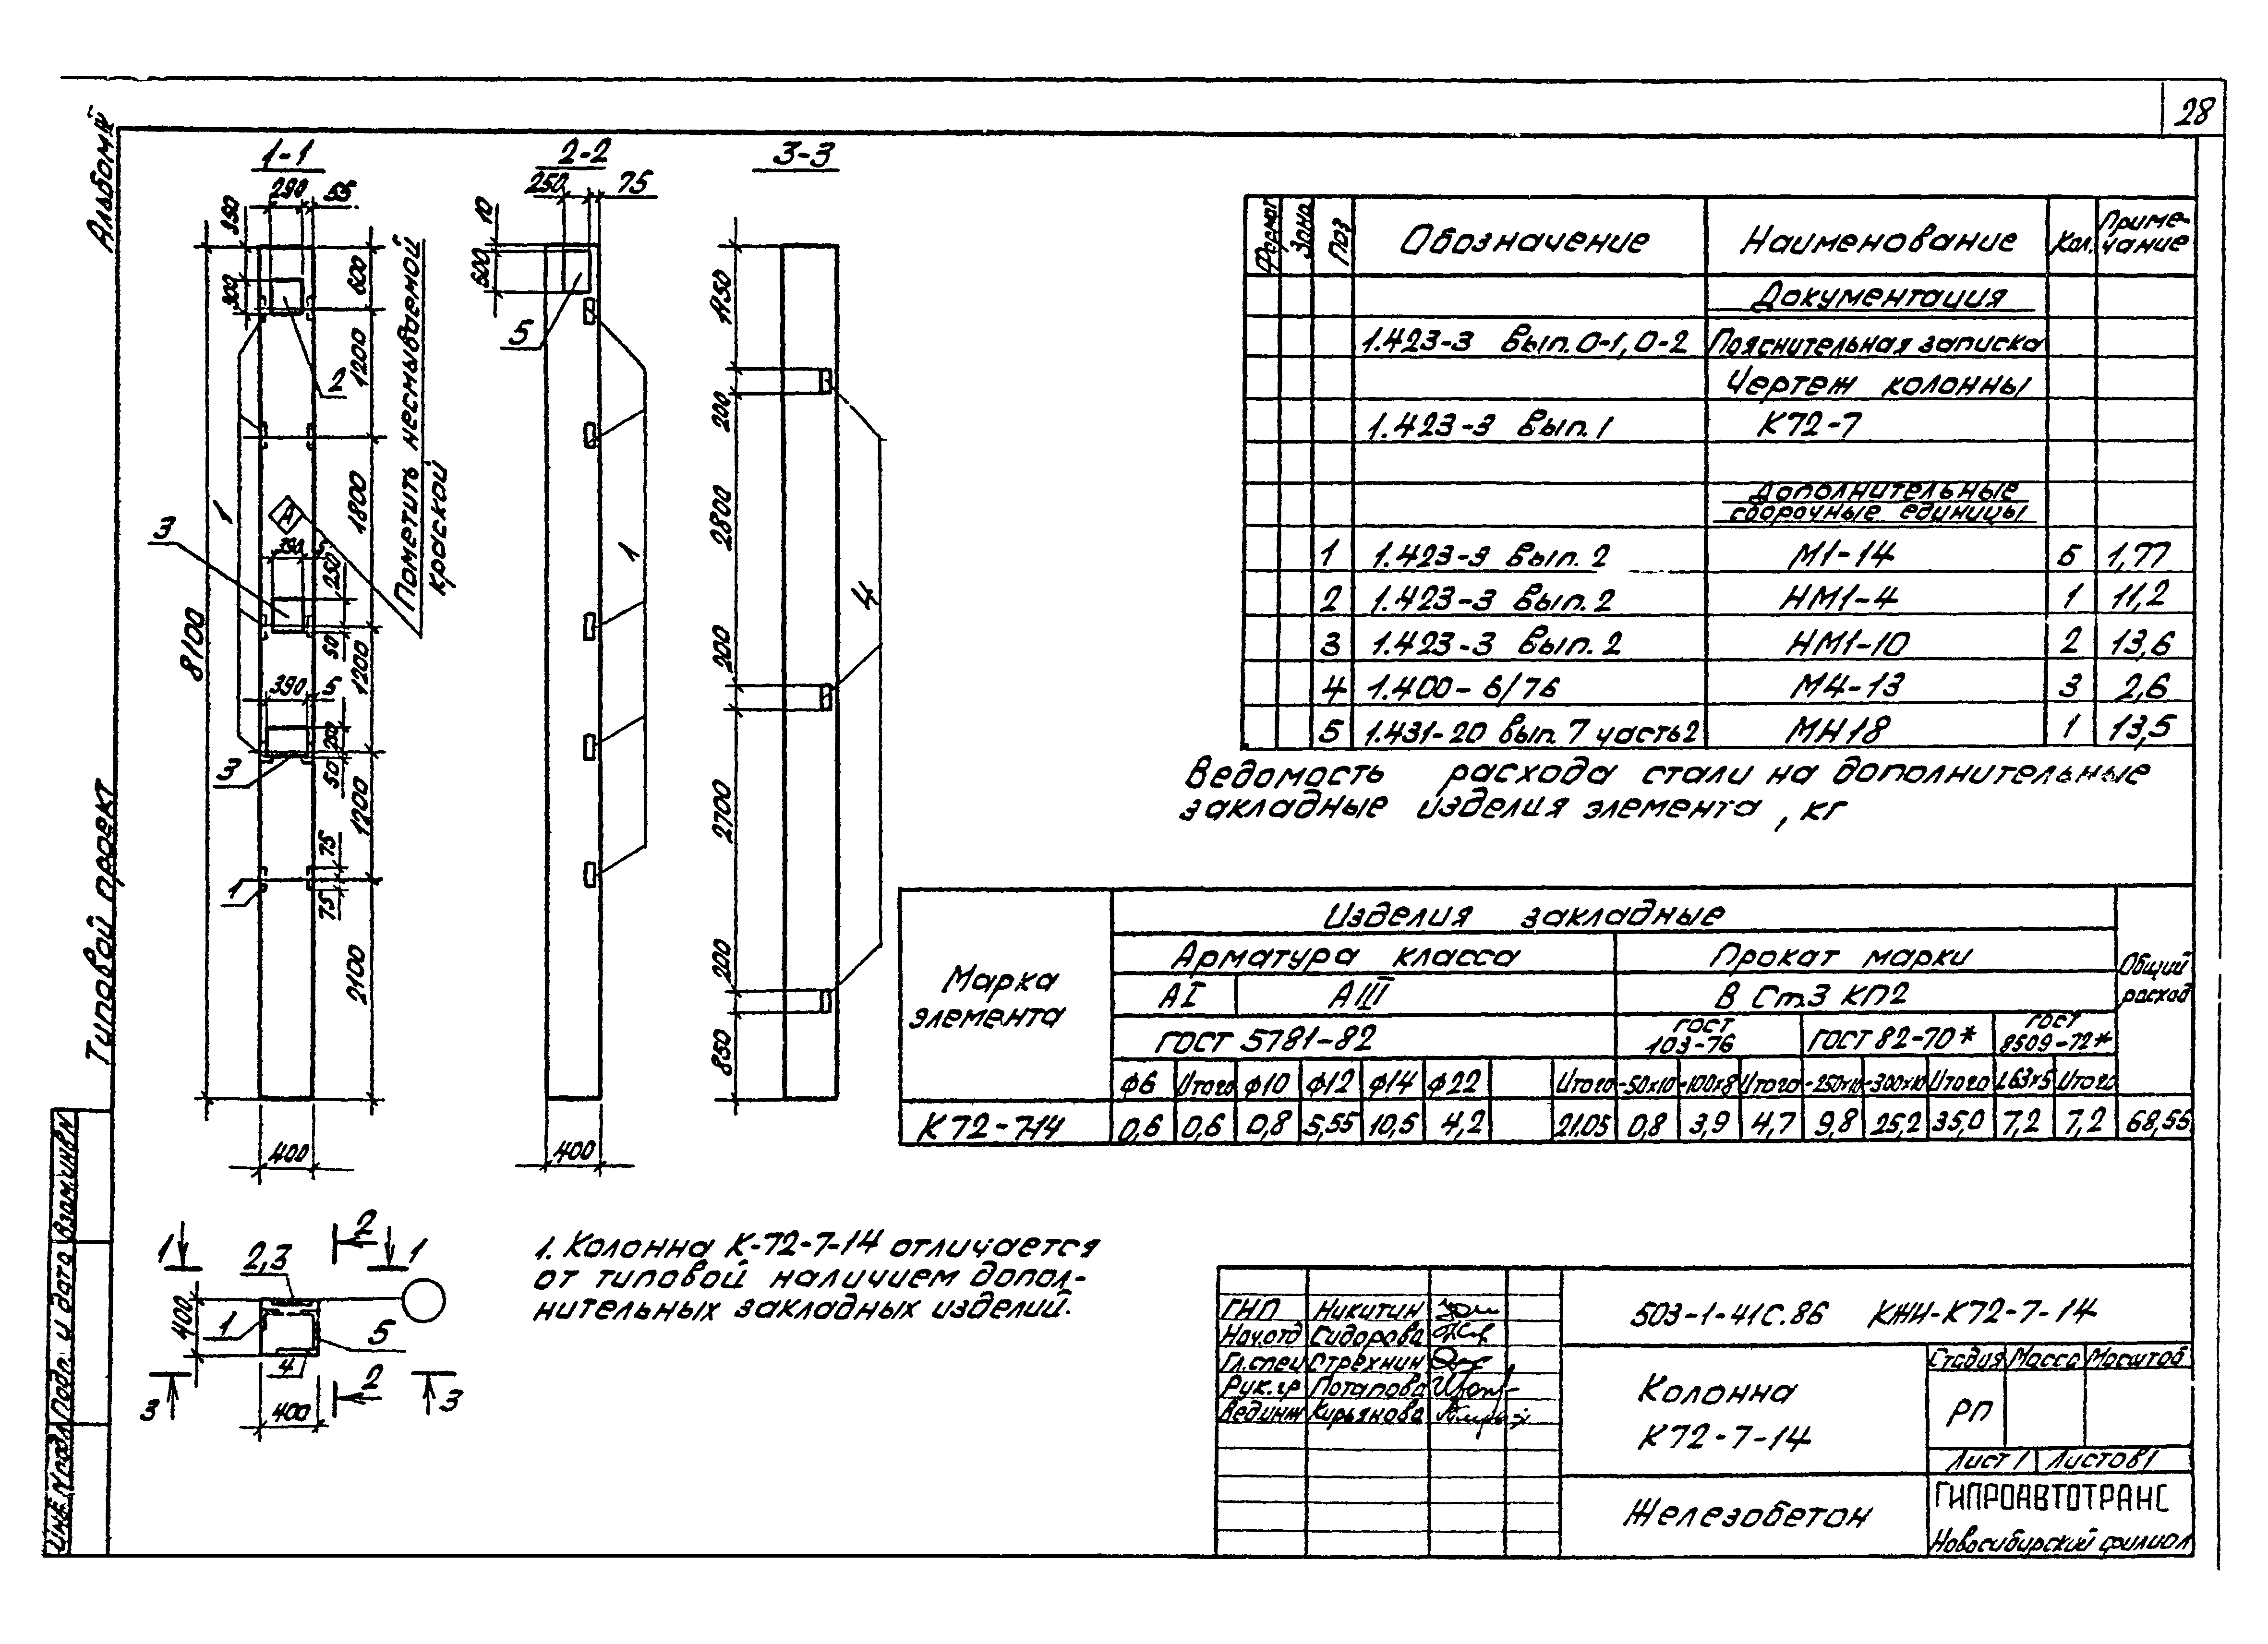 28
Альбом IV
Типовой проект
1-1
290
55
350
300
600
1200
1800
1200
1200
2100
8100
2
1
3
А
390
5
250
50
390
5
200
50
3
75
75
1
400
Пометить несмываемой
краской
2-2
250
75
10
600
5
1
400
3-3
1150
200
2800
200
2700
200
850
4
Формат Зона Поз Обозначение Наименование Кол. Приме-
чание
Документация
1.423-3 Вып. 0-1, 0-2 Пояснительная записка
Чертеж колонны
1.423-3 Вып. 1 К72-7
Дополнительные
сборочные единицы
1 1.423-3 Вып. 2 М1-14 5 1,77
2 1.423-3 Вып. 2 НМ1-4 1 11,2
3 1.423-3 Вып. 2 НМ1-10 2 13,6
4 1.400-6/76 М4-13 3 2,6
5 1.431-20 Вып. 7 часть 2 МН18 1 13,5
Ведомость расхода стали на дополнительные
закладные изделия элемента, кг
Марка
элемента
Изделия закладные
Общий
расход
Арматура класса Прокат марки
АI АIII В Ст.3 КП2
ГОСТ 5781-82 ГОСТ
103-76 ГОСТ 82-70* ГОСТ
8509-72*
ф6 Итого ф10 ф12 ф14 ф22 Итого -50х10 -100х8 Итого -250х10 -300х10 Итого L63х5 Итого
К72-7-14 0,6 0,6 0,8 5,55 10,5 4,2 21.05 0,8 3,9 4,7 9,8 25,2 35,0 7,2 7,2 68,55
1 2 1
2,3
400
1 5
4
3 2 3
400
1. Колонна К-72-7-14 отличается
от типовой наличием допол-
нительных закладных изделий.
ГНП Никитин
Нач.отд Сидорова
Гл.спец Стрехнин
Рук.гр Потапова
Вед.инж Кирьянова
503-1-41С.86 КЖИ-К72-7-14
Колонна
К72-7-14
Стадия Масса Масштаб
РП
Лист 1 Листов 1
Железобетон
ГИПРОАВТОТРАНС
Новосибирский филиал
Инв. N подл. Подп. и дата Взам.инв N